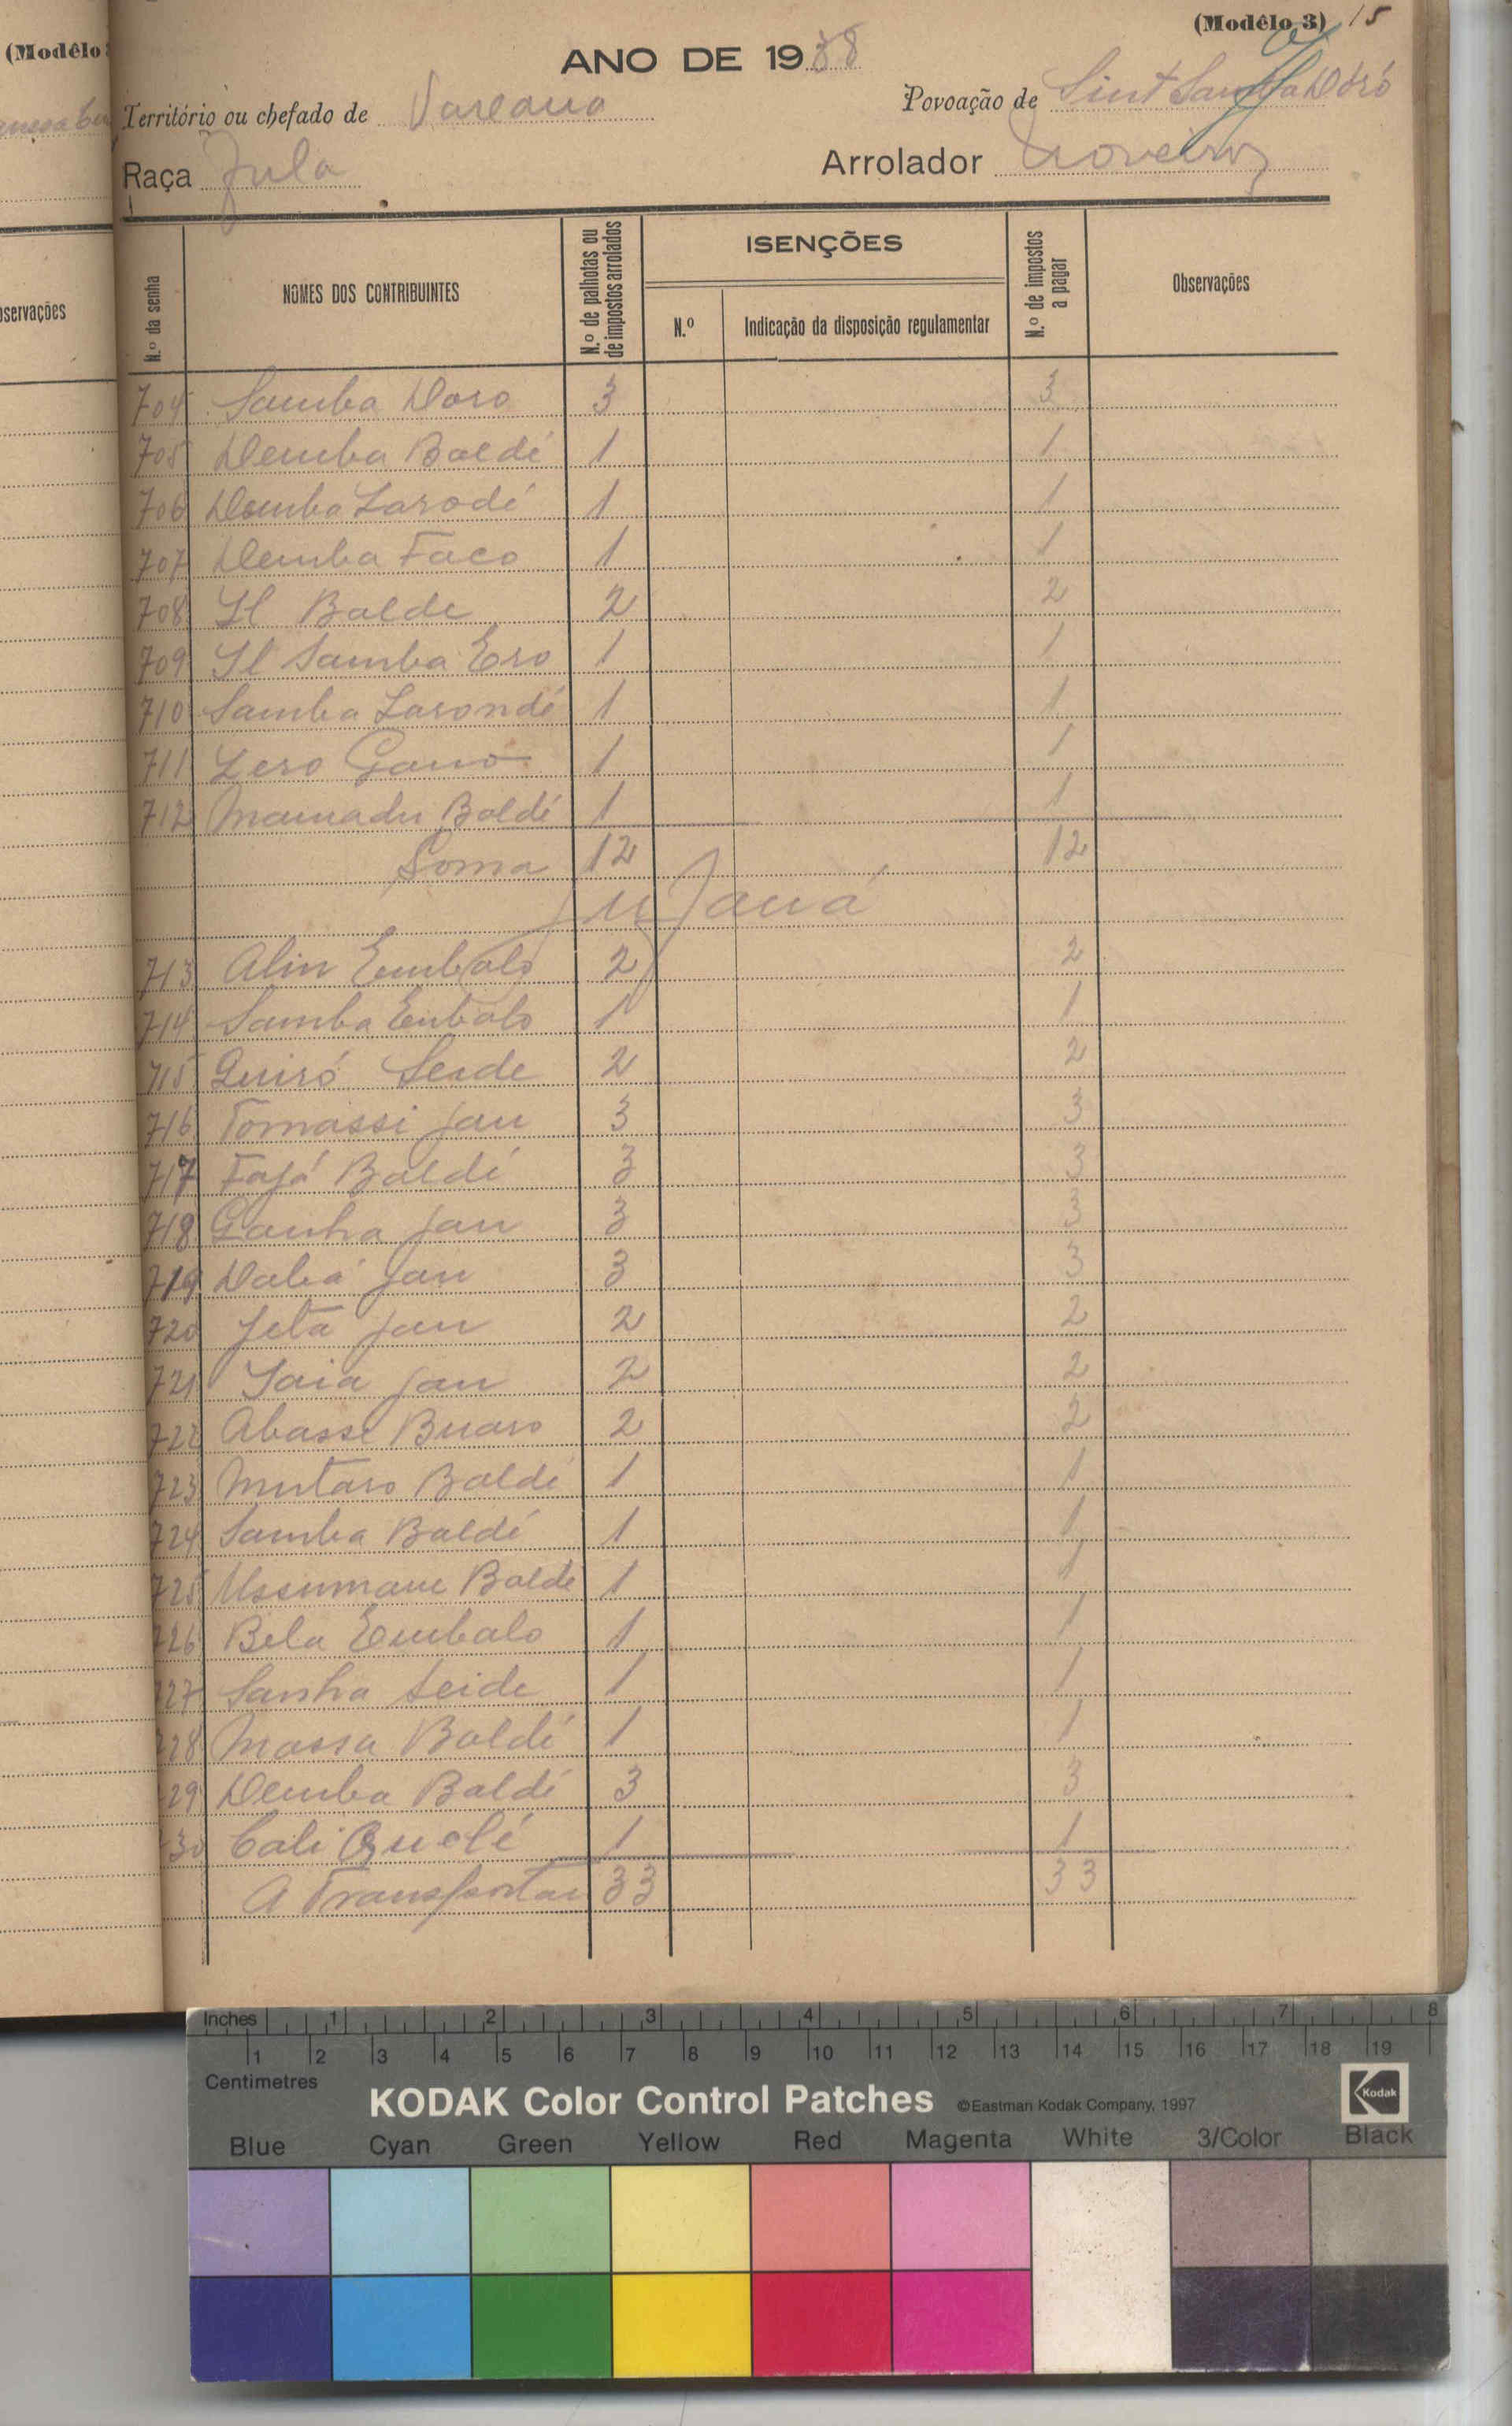 (Modêlo 3) 15
ANO DE 1938
Território ou chefado de
Povoação de Sint Samba Dóró
Raça Fula
Arrolador
N.º da senha
NOMES DOS CONTRIBUINTES
N.º de palhotas ou de impostos arrolados
ISENÇÕES
N.º
Indicação da disposição regulamentar
N.º de impostos a pagar
Observações
704 Samba Doro 3 3
705 Demba Baldé 1 1
706 Demba Larodé 1 1
707 Demba Faco 1 1
708 Il Balde 2 2
709 Il Samba Ero 1 1
710 Samba Larondé 1 1
711 Lero Gano 1 1
712 Mamadu Baldé 1 1
Soma 12 12
713 Alin Embalo 2 2
714 Samba Enbalo 1 1
715 Quiró Seide 2 2
716 Tomassi Jau 3 3
717 Fajá Baldé 3 3
718 Ganha Jau 3 3
719 Dabá Jau 3 3
720 Jeta Jau 2 2
721 Saia Jau 2 2
722 Abasse Buaro 2 2
723 Mutaro Baldé 1 1
724 Samba Baldé 1 1
725 Ussumane Baldé 1 1
726 Bela Embalo 1 1
727 Sanha Seide 1 1
728 Massa Baldé 1 1
729 Demba Baldé 3 3
730 Cali Quelé 1 1
A Transportar 33 33
(Modêlo
Observações
Inches 1 2 3 4 5 6 7 8
1 2 3 4 5 6 7 8 9 10 11 12 13 14 15 16 17 18 19
Centimetres
KODAK Color Control Patches ©Eastman Kodak Company, 1997 Kodak
Blue Cyan Green Yellow Red Magenta White 3/Color Black